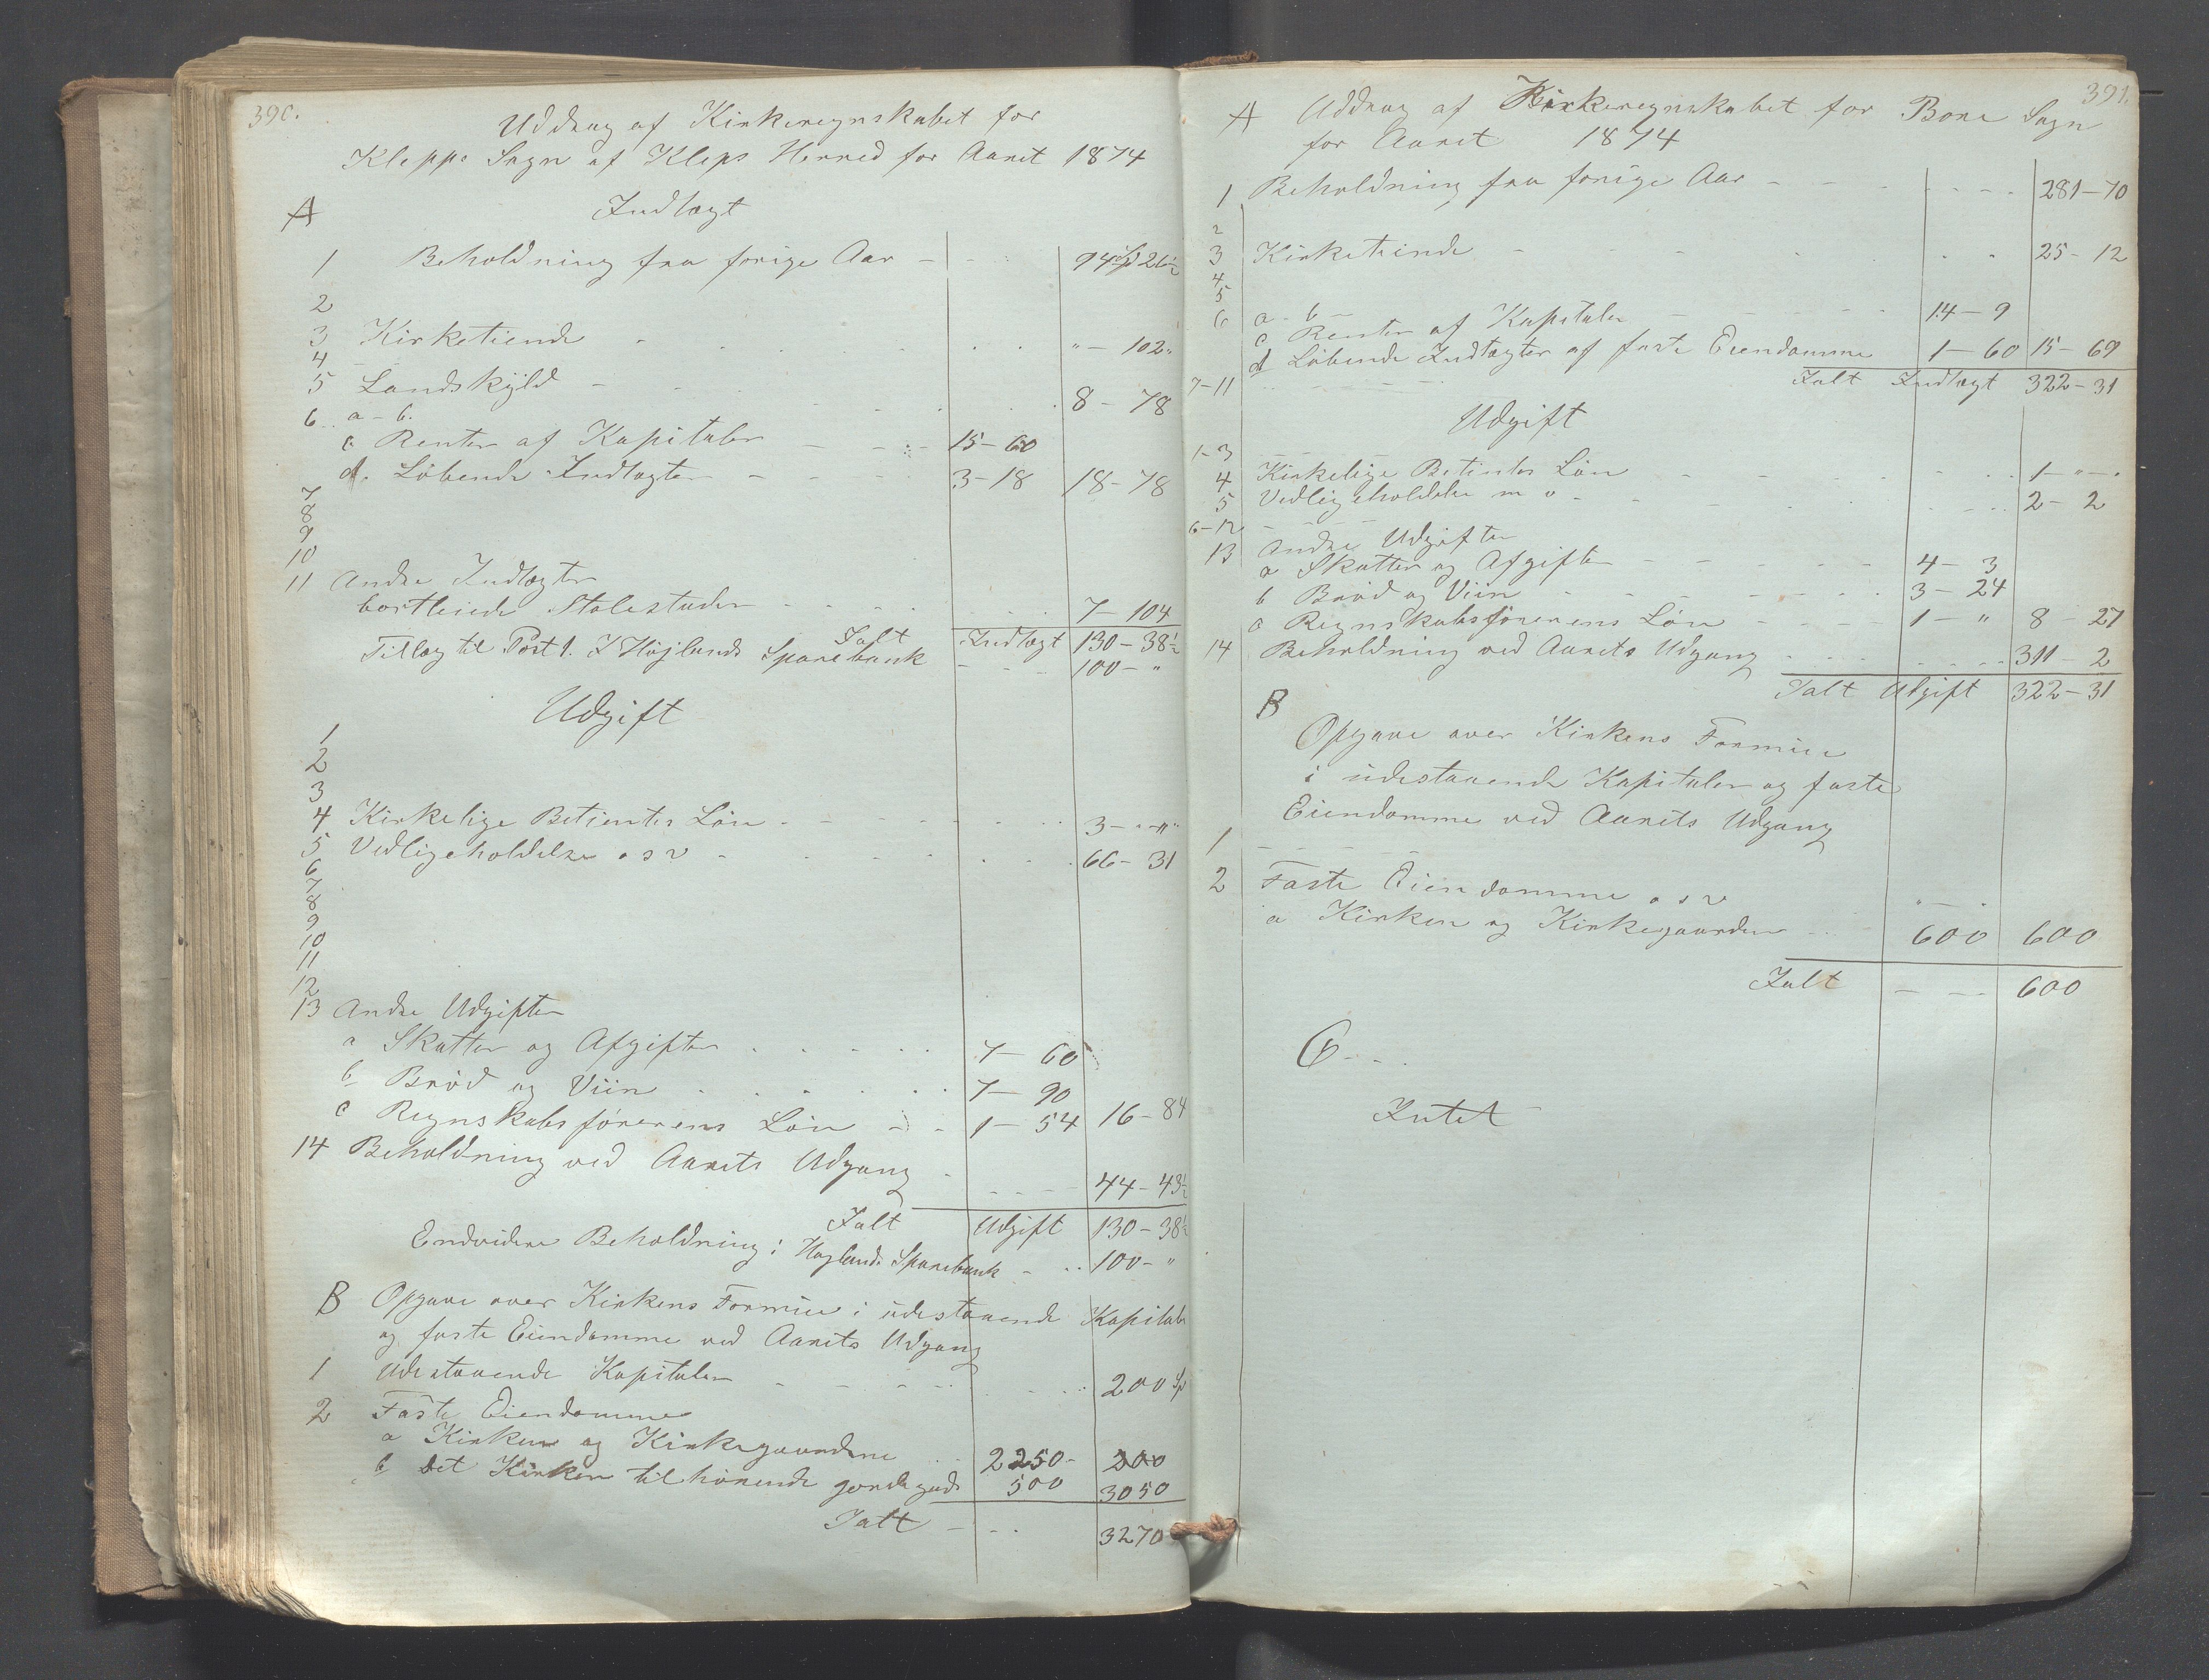 390.
Uddrag af Kirkeregnskabet for
Klepps Sogn af Kleps Herred for Aaret 1874
A Indtægt
1 Beholdning fra forige Aar - - 94 Sp 26½
2
3 Kirketiende " - 102 "
4
5 Landskyld - 8 - 78
6 a - b.
c Renter af Kapitaler - - - 15 - 60
d. Løbende Indtægter - - - 3 - 18 18 - 78
7
8
9
10
11 Andre Indtægter
bortleiede Stolestader 7 - 104
Ialt Indtægt 130 - 38½
Tillæg til Post 1. I Højlands Sparebank - - 100 - "
Udgift
1
2
3
4 Kirkelige Betientes Løn - - - 3 - " - "
5 Vedligeholdelse o s v - - - 66 - 31
6
7
8
9
10
11
12
13 Andre Udgifter
a Skatter og Afgifter . . . . . 7 - 60
b Brød og Viin . . . . . 7 - 90
c Regnskabsførerens Løn - - 1 - 54 16 - 84
14 Beholdning ved Aarets Udgang - 44 - 43½
Ialt Udgift 130 - 38½
Endvidere Beholdning i Høglands Sparebank - 100 - "
B Opgave over Kirkens Formue i udestaaende Kapitaler
og faste Eiendomme ved Aarets Udgang
1 Udestaaende Kapitaler - - - 200 Sp
2 Faste Eiendomme
a Kirken og Kirkegaardene 2250 - 200
b Det Kirken tilhørende jordegods 500 3050
Ialt - - 3270
391.
A Uddrag af Kirkeregnskabet for Bore Sogn
for Aaret 1874
1 Beholdning fra forige Aar - - - 281 - 70
2
3 Kirketiende - - - 25 - 12
4
5
6 a - b -
c Renter af Kapitaler - - - 14 - 9
d Løbende Indtægter af faste Eiendomme 1 - 60 15 - 69
7-11 Ialt Indtægt 322 - 31
Udgift
1-3
4 Kirkelige Betientes Løn - - - 1 - " -
5 Vedligeholdelse m v - - - 2 - 2
6-12
13 Andre Udgifter
a Skatter og Afgifter - - - 4 - 3
b Brød og Viin - - - 3 - 24
c Regnskabsførerens Løn - - - 1 - " 8 - 27
14 Beholdning ved Aarets Udgang - - - 311 - 2
Ialt Udgift 322 - 31
B
Opgave over Kirkens Formue
i udestaaende Kapitaler og faste
Eiendomme ved Aarets Udgang
1
2 Faste Eiendomme o s v
a Kirken og Kirkegaarden - - 600 600
Ialt - - 600
C - -
Intet